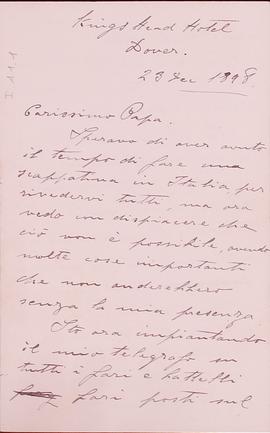 Kings Head Hotel
Dover.
23 Dec 1898.
I 1.1.1
Carissimo Papa.
Speravo di aver avuto
il tempo di fare una
scappatina in Italia per
rivedervi tutti, ma ora
vedo con dispiacere che
ciò non è possibile, avendo
molte cose importanti
che non anderebbero
senza la mia presenza
Sto ora impiantando
il mio telegrafo su
tutti i fari e battelli
fari posti sul